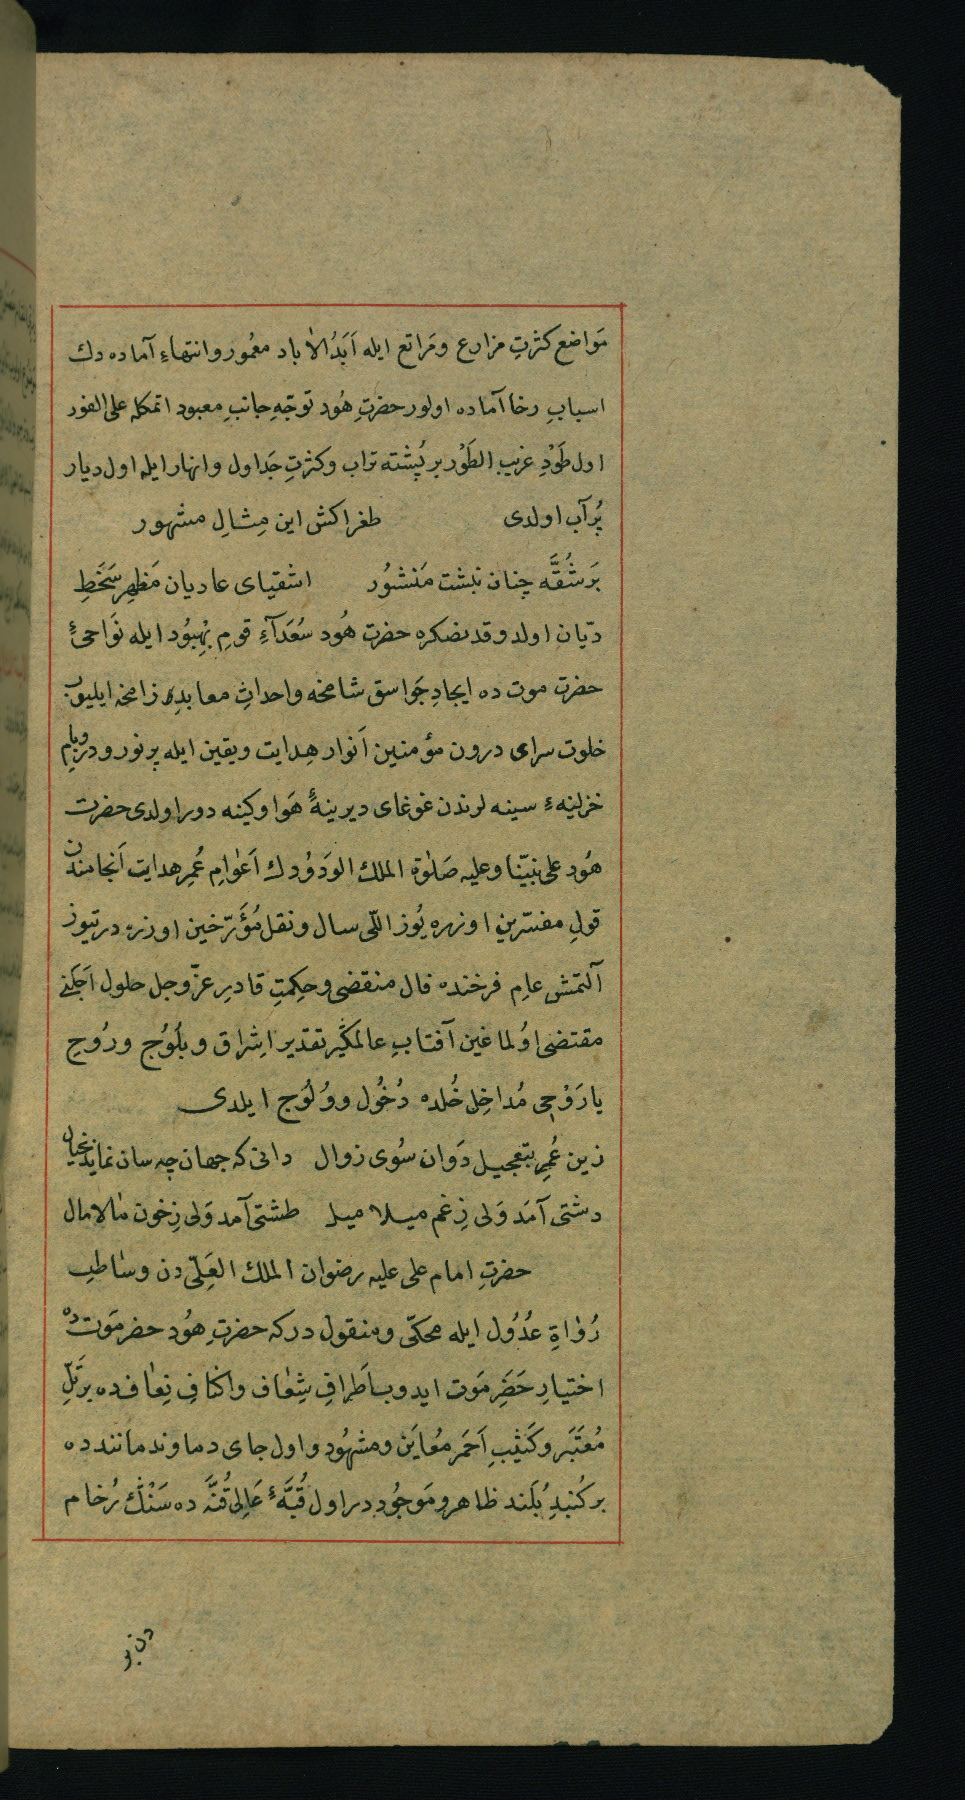 مَواضع كثرتِ مزارع ومَراتع ايله اَبَدُ الاٰباد معمُور وانتهاءِ آماده دك
اسبابِ رخا آماده اولور حضرتِ هُود توجّهِ جانبِ معبود اتمكله على الفور
اول طَوْدِ غريب الطَوْر بر پُشته تراب وكثرتِ جَداول وانهار ايله اول ديار
پُر آب اولدى طغرا كش اين مِثالِ مشهور
بَر شُقَّه چنان نبشت مَنشوُر اشقياى عاديان مَظهرِ سَخَطِ
ديّان اولدوقدنصكره حضرت هُود سُعَدآءِ قومِ بهبُود ايله نَواحئِ
حضرت موت ده ايجادِ جَواسق شامخه واحداثِ معابدِه زامخه ايليوب
خلوت سراى درون مؤمنين اَنوار هِدايت ويقين ايله پر نور ودر وبامِ
خزلنيهء سينه لرندن غوغاى ديرينهٔ هَوا وكينه دور اولدى حضرت
هُود على نبيّنا وعليه صَلٰوة الملك الوَدوُدك اَعْوامِ عُمرِ هدايت اَنجامندن
قولِ مفسّرين اوزره يُوز اللّى سال ونقل مُؤَرّخين اوزره درتيوز
آلتمش عامِ فرخنده فال منقضى وحِكمتِ قادرِ عزّ وجل حلول اَجَكنے
مقتضى اوُلماغين آفتابِ عالمگيرِ تقدير اِشراق وبلُوُج ورُوحِ
يا رَوْحِى مُداخِل خُلده دُخُول ووُلُوج ايلدى
زين عُمرِ بتعجيل دَوان سُوى زوال دانى كه جهان چه سان نمايد بخيال
دشتى آمَد وَلى زِغم ميلا ميل طشتى آمد وَلى زِخون مٰالامال
حضرتِ امام على عليه رضوان الملك العَلّى دن وسٰاطبِ
رُوٰاةِ عُدُول ايله محكّى ومنقول دركه حضرتِ هُود حضرمَوت ده
اختيارِ حَضَرِ مَوت ايدوب اَطَرافِ شِعٰاف واكنافِ نِعٰافده بر تَلِّ
مُعتَبَر وكَثيْبِ اَحمَر مُعايَن ومشهُود واول جاى دماوند ماننده ده
بر كُنبدِ بُلَند ظاهر ومَوجُود در اول قُبَّهٔ عَالِى قُنَّه ده سَنْك رُخام
دن بر